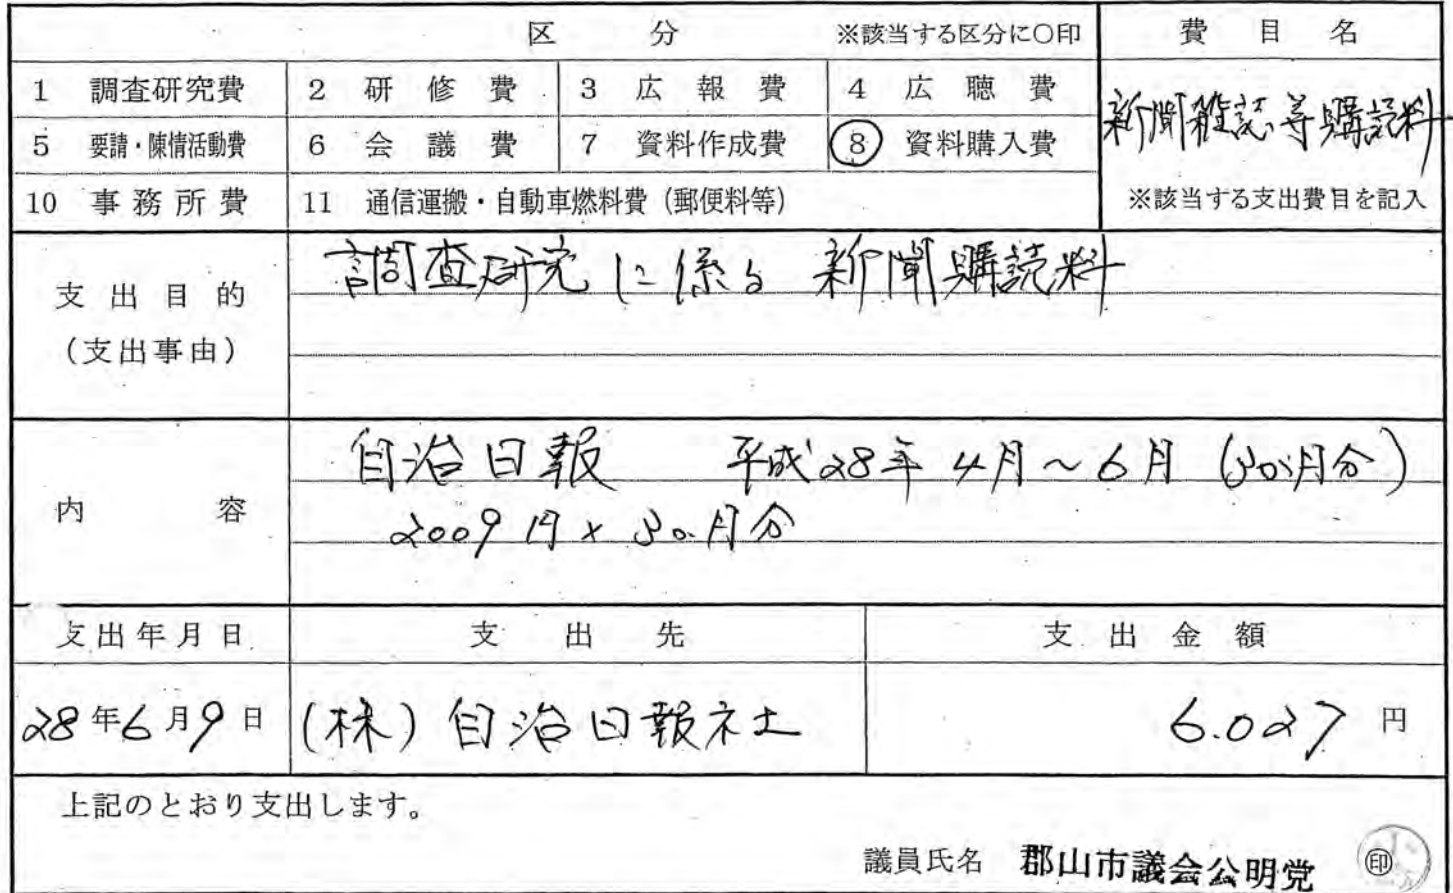 区 分 ※該当する区分に○印
費 目 名
1 調査研究費 2 研 修 費 3 広 報 費 4 広 聴 費
新聞雑誌等購読料
5 要請・陳情活動費 6 会 議 費 7 資料作成費 8 資料購入費
10 事務所費 11 通信運搬・自動車燃料費(郵便料等)
※該当する支出費目を記入
支出目的
(支出事由)
調査研究に係る新聞購読料
内 容
自治日報 平成28年4月~6月(3か月分)
2009円×3か月分
支出年月日 支 出 先 支 出 金 額
28年6月9日 (株)自治日報社 6.027円
上記のとおり支出します。
議員氏名 郡山市議会公明党 ㊞